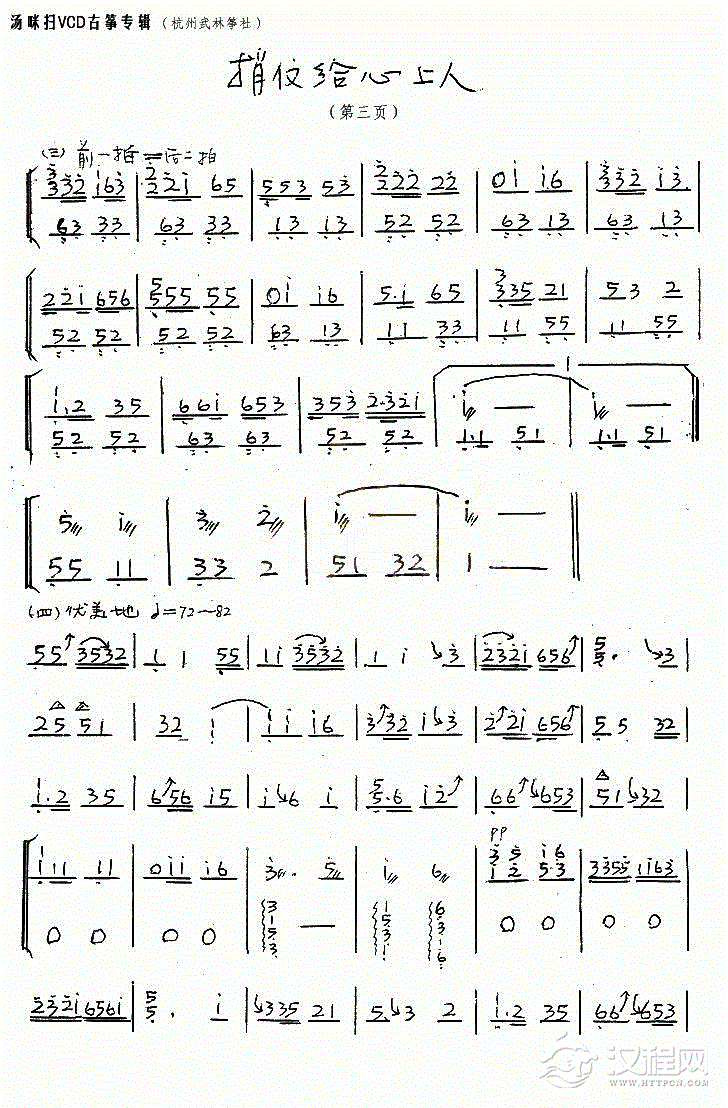 汤咪扫VCD古筝专辑（杭州武林筝社）
捎伩给心上人
（第三页）
(三) 前一拍=后二拍
3 332 163 | 2 221 65 | 553 53 | 2 222 22 | 01 16 | 3 332 13
63 33 | 63 33 | 13 13 | 52 52 | 63 13 | 63 13
221 656 | 5 555 55 | 01 16 | 5·1 65 | 3 335 21 | 53 2
52 52 | 52 52 | 63 13 | 11 33 | 11 55 | 11 55
1·2 35 | 661 653 | 353 2·321 | 1 — | 1 —
52 52 | 63 63 | 52 52 | 1·1 51 | 1·1 51
5 1 | 3 2 | 1 — | 1 —
55 11 | 33 2 | 51 32 | 1 —
(四) 优美地 ♩=72～82
55 3532 | 1 1 55 | 11 3532 | 1 1 3 | 2321 656 | 5 5 · 3
25 51 | 32 1 | 11 16 | 332 13 | 221 656 | 5 5 32
1·2 35 | 656 15 | 16 1 | 5 5·6 12 | 66 653 | 51 32
1 11 11 | 011 16 | 3· 5 | 1 6 | 35 16 | 3355 1163
pp
12 5·3
0 0 | 0 0 | 3153 — | 1531 6316 | 0 0 | 0 0
2321 6561 | 5 5 · 1 | 335 21 | 5·3 2 | 1·2 35 | 66 653
汉程网
WWW.HTTPCN.COM